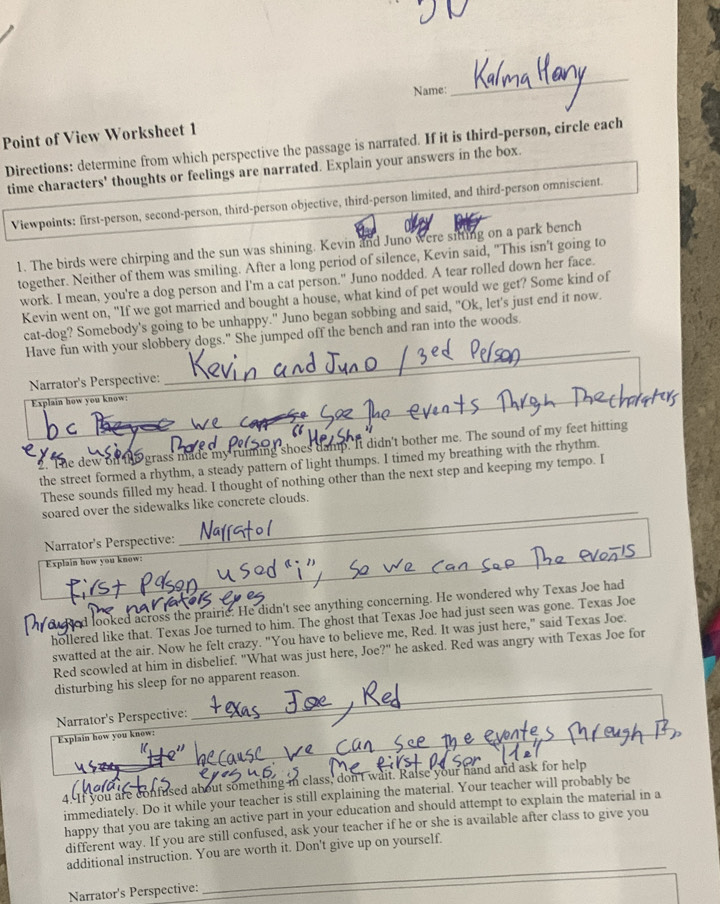 Name: Kalma Hany
Point of View Worksheet 1
Directions: determine from which perspective the passage is narrated. If it is third-person, circle each
time characters' thoughts or feelings are narrated. Explain your answers in the box.
Viewpoints: first-person, second-person, third-person objective, third-person limited, and third-person omniscient.
1. The birds were chirping and the sun was shining. Kevin and Juno were sitting on a park bench
together. Neither of them was smiling. After a long period of silence, Kevin said, "This isn't going to
work. I mean, you're a dog person and I'm a cat person." Juno nodded. A tear rolled down her face.
Kevin went on, "If we got married and bought a house, what kind of pet would we get? Some kind of
cat-dog? Somebody's going to be unhappy." Juno began sobbing and said, "Ok, let's just end it now.
Have fun with your slobbery dogs." She jumped off the bench and ran into the woods.
Narrator's Perspective: Kevin and Juno / 3ed Person
Explain how you know:
bc we see The events Thrgh The charaters
eyes using Thered person "He,she"
2. The dew on the grass made my running shoes damp. It didn't bother me. The sound of my feet hitting
the street formed a rhythm, a steady pattern of light thumps. I timed my breathing with the rhythm.
These sounds filled my head. I thought of nothing other than the next step and keeping my tempo. I
soared over the sidewalks like concrete clouds.
Narrator's Perspective: Narrator
Explain how you know:
first person used "i", so we can see The events
Through The narrators eyes
looked across the prairie. He didn't see anything concerning. He wondered why Texas Joe had
hollered like that. Texas Joe turned to him. The ghost that Texas Joe had just seen was gone. Texas Joe
swatted at the air. Now he felt crazy. "You have to believe me, Red. It was just here," said Texas Joe.
Red scowled at him in disbelief. "What was just here, Joe?" he asked. Red was angry with Texas Joe for
disturbing his sleep for no apparent reason.
Narrator's Perspective: texas Joe, Red
Explain how you know:
"He" because we can see The eventes Through
eyes The first "He"
4. If you are confused about something in class, don't wait. Raise your hand and ask for help
immediately. Do it while your teacher is still explaining the material. Your teacher will probably be
happy that you are taking an active part in your education and should attempt to explain the material in a
different way. If you are still confused, ask your teacher if he or she is available after class to give you
additional instruction. You are worth it. Don't give up on yourself.
Narrator's Perspective: